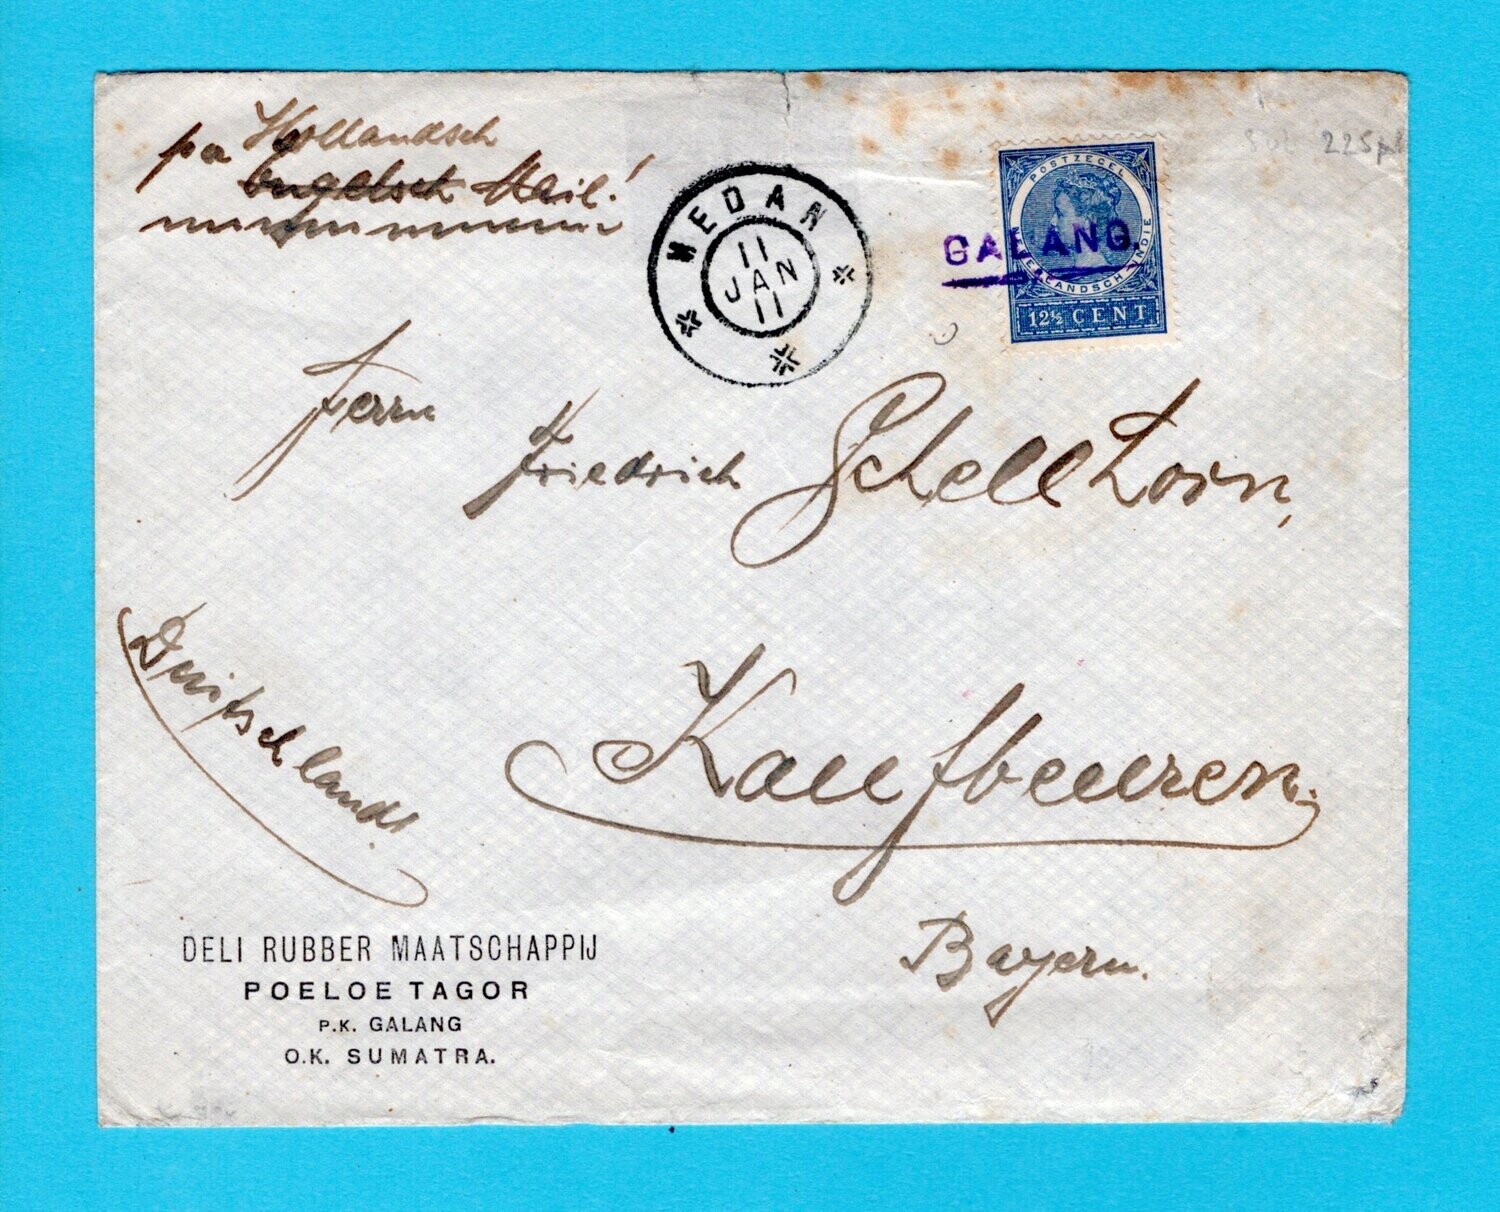 pa Hollandsch
Engelsch Mail!
MEDAN
11
JAN
11
POSTZEGEL
NEDERLANDSCH-INDIE
12½ CENT
GALANG.
Herrn
Friedrich Schellhorn,
Kaufbeuren.
Bayern.
Deutschland.
DELI RUBBER MAATSCHAPPIJ
POELOE TAGOR
P.K. GALANG
O.K. SUMATRA.